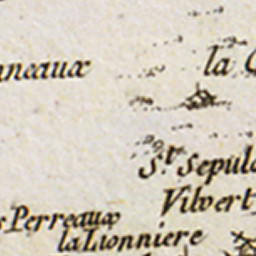 nneaux la
S.t Sepul
Vilvert
Perreaux
la Lionniere